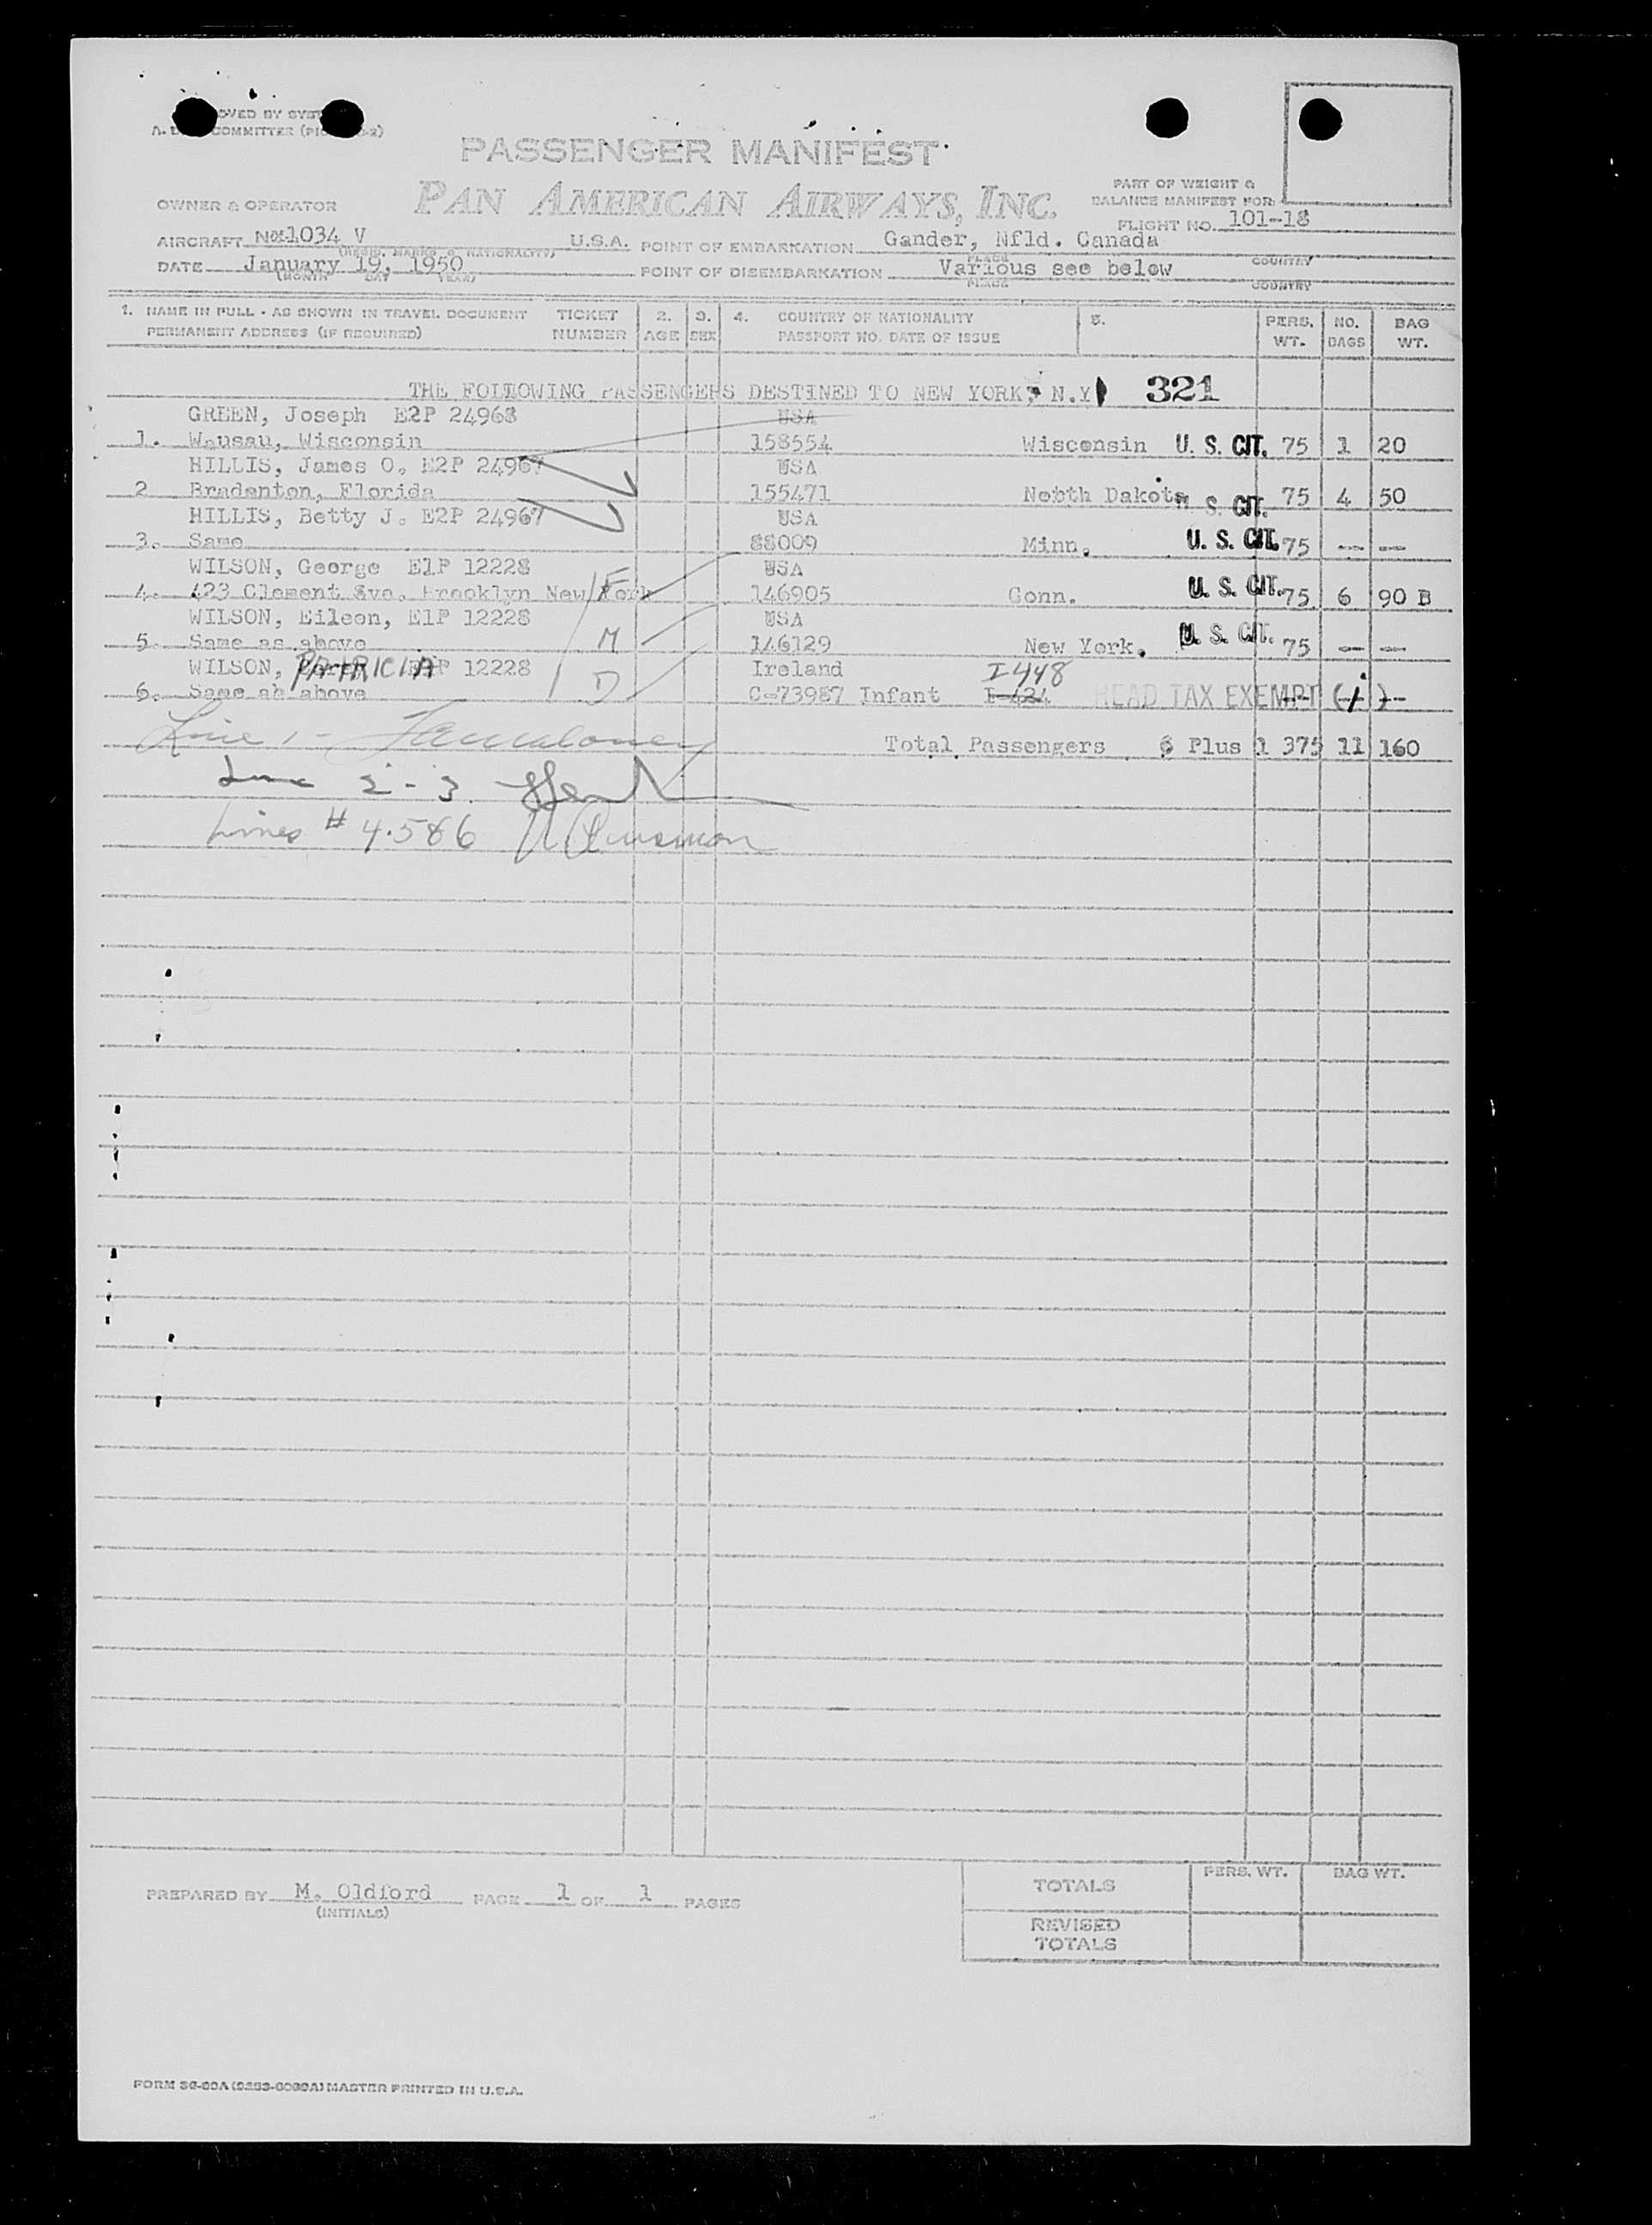 PASSENGER MANIFEST
PAN AMERICAN AIRWAYS, INC.
OWNER & OPERATOR
PART OF WEIGHT &
BALANCE MANIFEST FOR:
FLIGHT NO. 101-18
AIRCRAFT 1034 V U.S.A. POINT OF EMBARKATION Gander, Nfld. Canada
(REGIS. MARKS & NATIONALITY) PLACE COUNTRY
DATE January 19, 1950 POINT OF DISEMBARKATION Various see below
(MONTH DAY YEAR) PLACE COUNTRY
1. NAME IN FULL - AS SHOWN IN TRAVEL DOCUMENT TICKET 2. 3. 4. COUNTRY OF NATIONALITY 5. PERS. NO. BAG
PERMANENT ADDRESS (IF REQUIRED) NUMBER AGE SEX PASSPORT NO. DATE OF ISSUE WT. BAGS WT.
THE FOLLOWING PASSENGERS DESTINED TO NEW YORK, N.Y 321
GREEN, Joseph E2P 24968 USA
1. Wausau, Wisconsin 158554 Wisconsin U. S. CIT. 75 1 20
HILLIS, James O. E2P 24967 USA
2 Bradenton, Florida 155471 Nobth Dakota U. S. CIT. 75 4 50
HILLIS, Betty J. E2P 24967 USA
3. Same 88009 Minn. U. S. CIT. 75 -- --
WILSON, George E1P 12228 USA
4. 423 Clement Ave. Brooklyn New York F 146905 Conn. U. S. CIT. 75 6 90 B
WILSON, Eileen, E1P 12228 USA
5. Same as above M 146129 New York. U. S. CIT. 75 -- --
WILSON, PATRICIA E1P 12228 Ireland I-448
6. Same as above D C-73987 Infant I-424 HEAD TAX EXEMPT (i)
Line 1 -
Total Passengers 6 Plus 1 375 11 160
Line 2 - 3.
Lines # 4.5&6
PREPARED BY M. Oldford PAGE 1 OF 1 PAGES
(INITIALS)
TOTALS PERS. WT. BAG WT.
REVISED
TOTALS
MASTER PRINTED IN U.S.A.